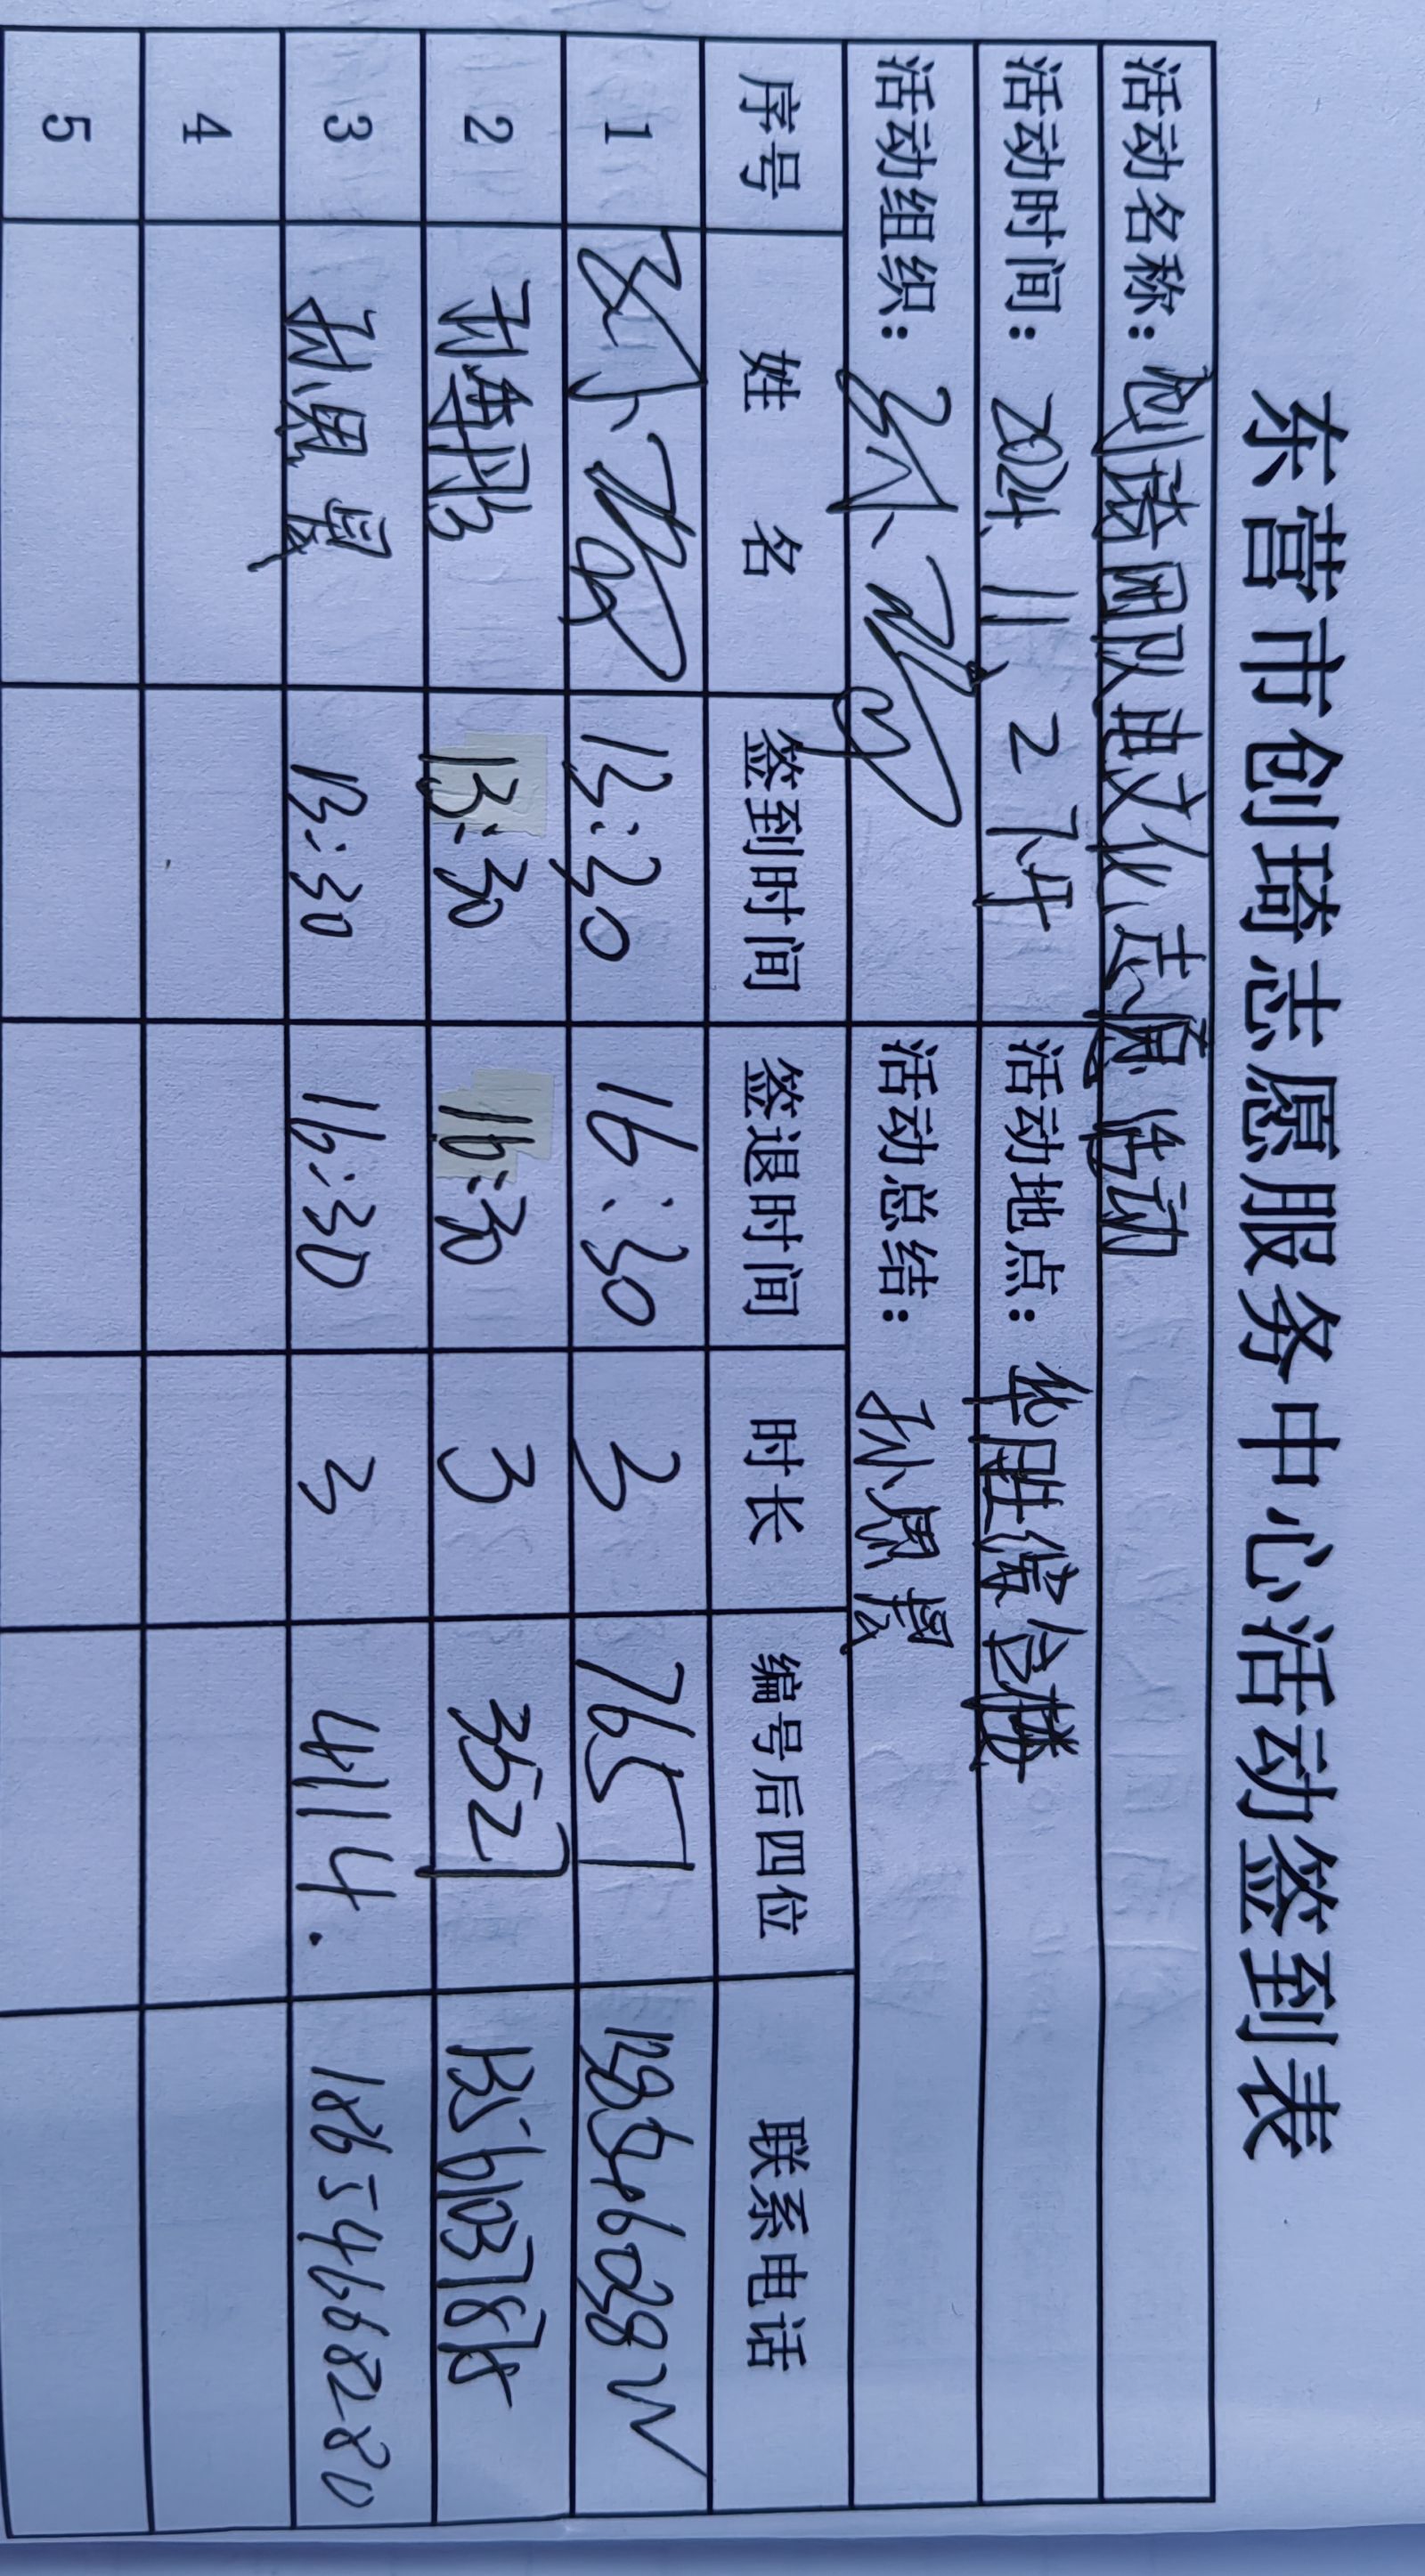 东营市创琦志愿服务中心活动签到表
活动名称：创琦团队进文化志愿活动
活动时间：2024、11、2 下午 活动地点：华胜综合楼
活动组织： 活动总结：孙恩
序号 姓名 签到时间 签退时间 时长 编号后四位 联系电话
1 13:20 16:30 3 7651
2 13:30 16:30 3 3527
3 孙恩 13:30 16:30 3 4114. 18654668280
4
5